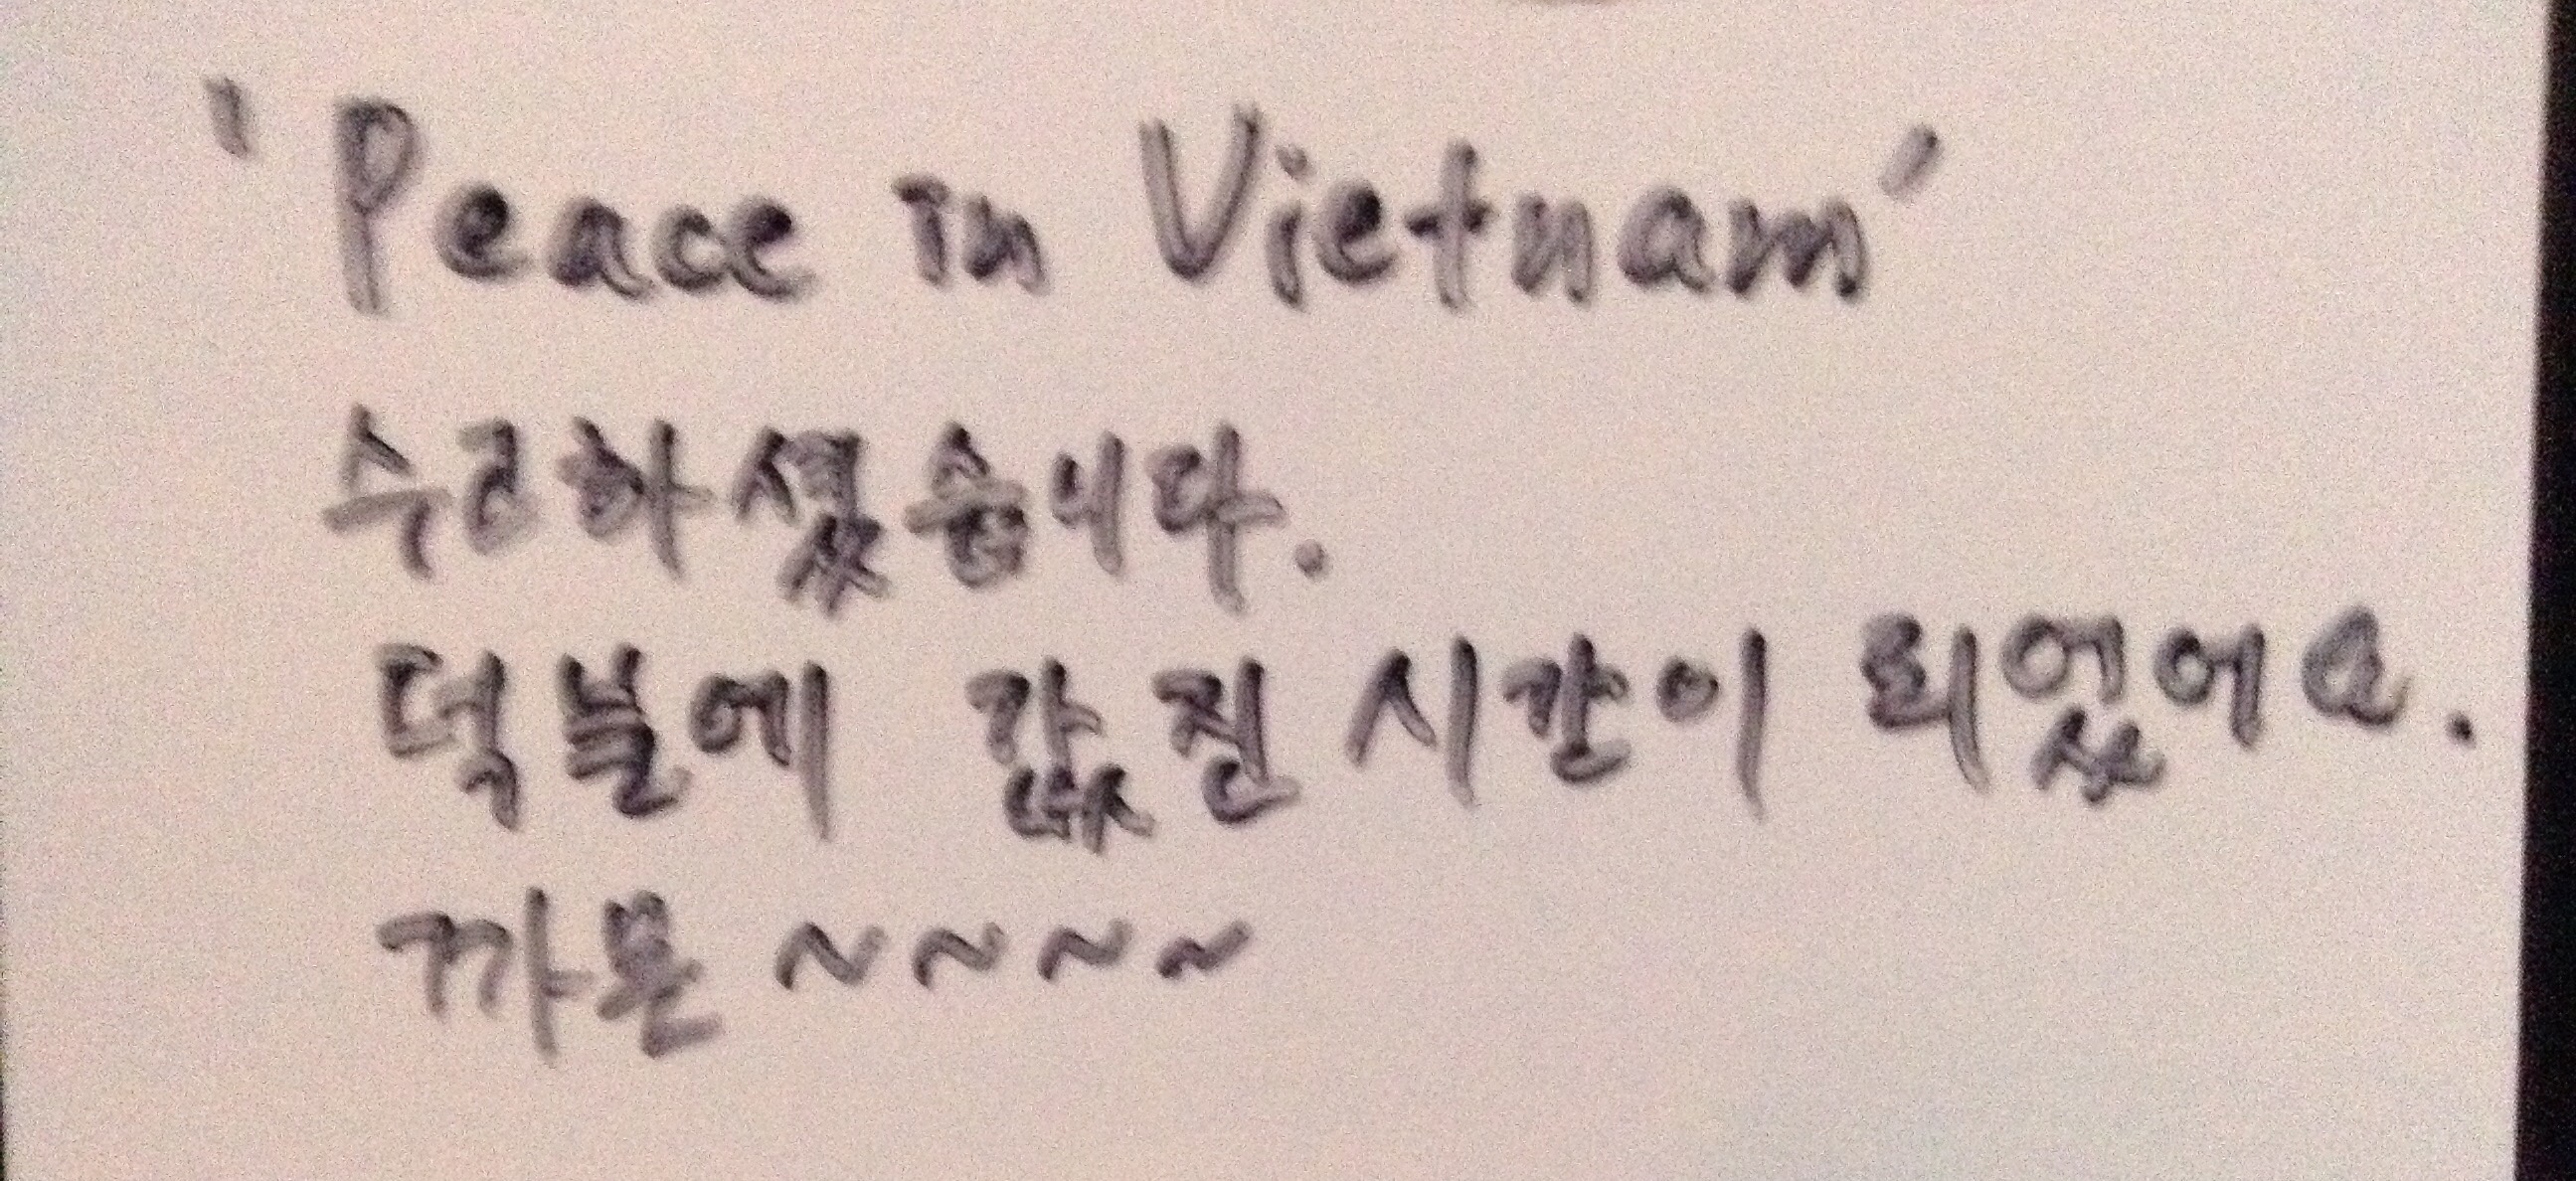 'Peace in Vietnam'
수리하셨습니다.
덕분에 값진 시간이 되었어요.
까몬 ~~~~